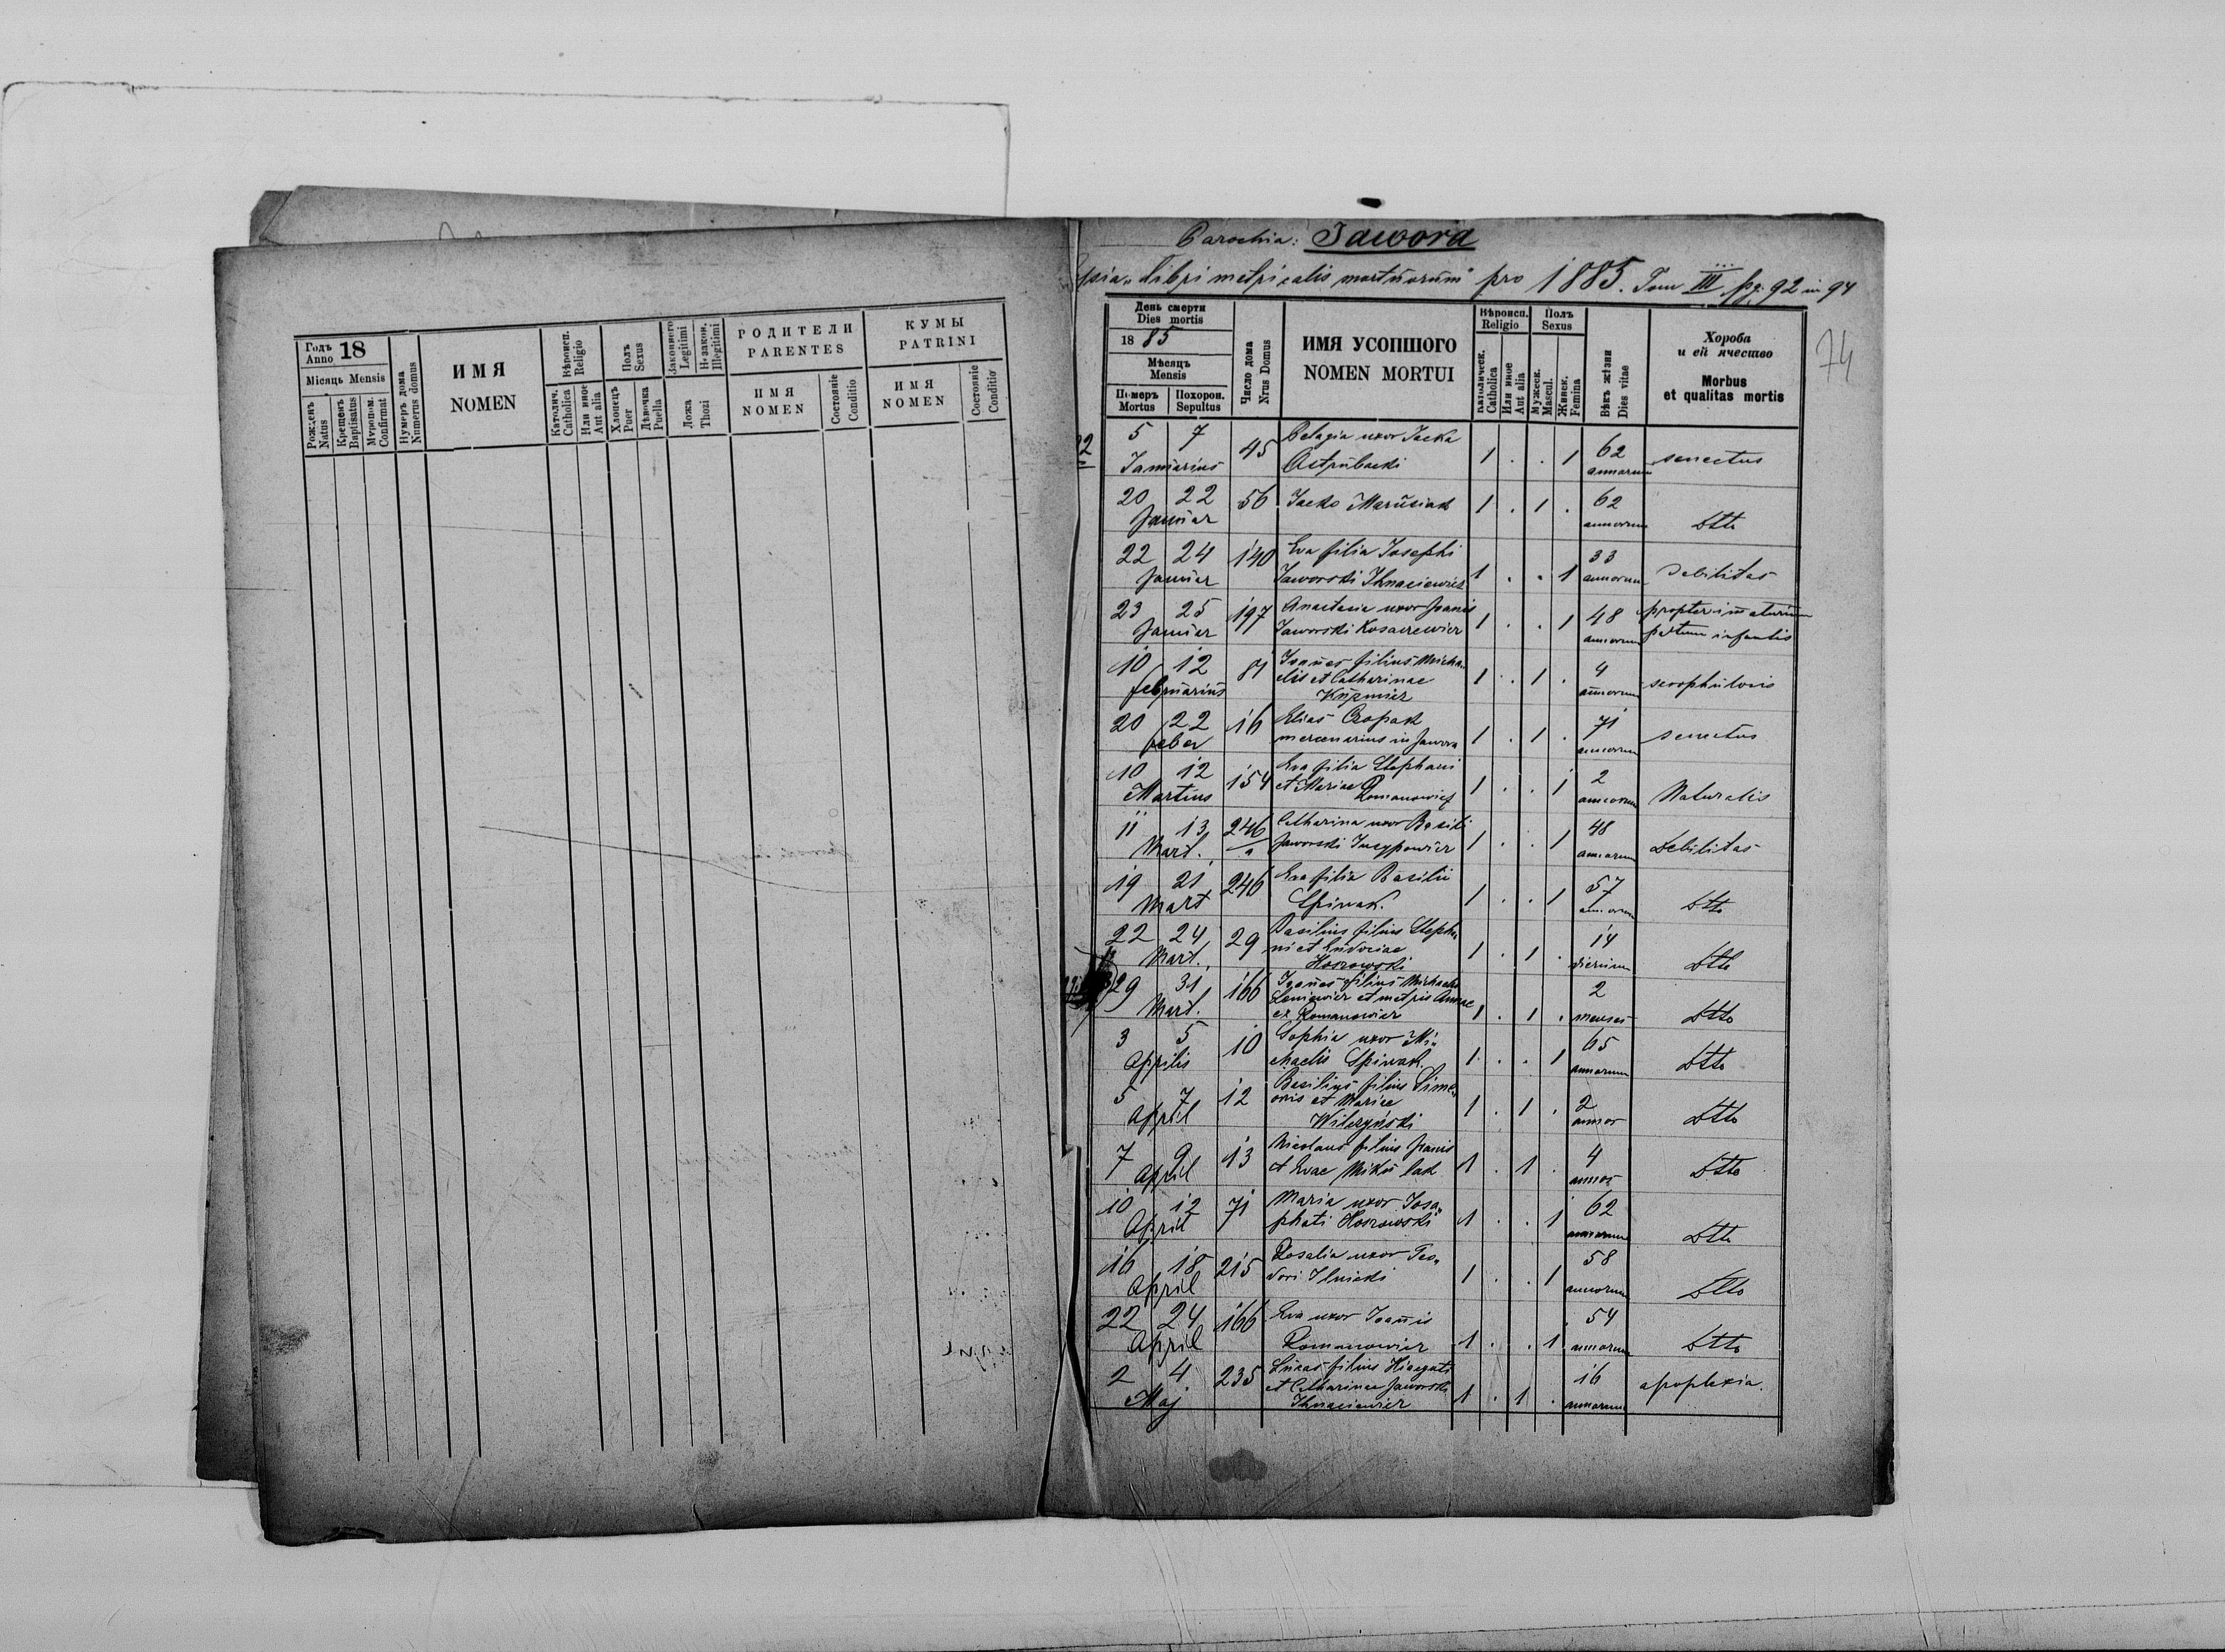 Годъ Anno 18
Місяць Mensis
Рожденъ Natus
Крещенъ Baptisatus
Мѵропом. Confirmat
Нумеръ дома Numerus domus
ИМЯ
NOMEN
Вѣроисп. Religio
Католич. Catholica
Или иное Aut alia
Полъ Sexus
Хлопецъ Puer
Дѣвочка Puella
Законного Legitimi
Незакон. Illegitimi
Ложа Thori
РОДИТЕЛИ
PARENTES
ИМЯ NOMEN
Состояніе Conditio
КУМЫ
PATRINI
ИМЯ NOMEN
Состояніе Conditio
Parochia: Jawora
Libri metricalis mortuorum pro 1885. Tom III pg. 92 in 94
74
День смерти
Dies mortis
1885
Мѣсяць
Mensis
Померъ Mortus
Похорон. Sepultus
Число дома Nrus Domus
ИМЯ УСОПШОГО
NOMEN MORTUI
Вѣроисп. Religio
Католическ. Catholica
Или иное Aut alia
Полъ Sexus
Мужеск. Mascul.
Женск. Femina
Вѣкъ жізни Dies vitae
Хороба
и ей ячество
Morbus
et qualitas mortis
5 7 Januarius 45 Pelagia uxor Jacka 1 . . 1 62 annorum senectus
20 22 Januar 56 Jacko Marusiak 1 . 1 . 62 annorum dtto
22 24 Januar 140 Eva filia Josephi
Jaworski Ihnaciewicz 1 . . 1 33 annorum Debilitas
23 25 Januar 197 Anastasia uxor Joanis
Jaworski Kosacewicz 1 . . 1 48 annorum propter imaturum
partum infantis
10 12 februarius 81 Joannes filius Micha„
elis et Catharinae
Kuzmicz 1 . 1 . 4 annorum scrophulosis
20 22 feber 16 Elias Czopak
mercenarius in Jawora 1 . 1 . 71 annorum senectus
10 12 Martius 154 Eva filia Stephani
et Mariae Romanowicz 1 . . 1 2 annorum Naturalis
11 13 Mart. 246/a Catharina uxor Basili
Jaworski Jucypowicz 1 . . 1 48 annorum Debilitas
19 21 Mart 246 Eva filia Basilii
Spiwak. 1 . . 1 57 annorum dtto
22 24 Mart. 29 Basilius filius Stepha
ni et Eudociae
Hoszowski 1 . 1 . 14 dierum dtto
29 31 Mart. 166 Joannes filius Michaelis
et matris Annae
ex Romanowicz 1 . 1 . 2 menses dtto
3 5 Aprilis 10 Sophia uxor Mi„
chaelis Spiwak. 1 . . 1 65 annorum dtto
5 7 April 12 Basilius filius Sime„
onis et Mariae
Wilczyński 1 . 1 . 2 annos dtto
7 9 April 13 Nicolaus filius Joanis
et Evae 1 . 1 . 4 annos dtto
10 12 April 71 Maria uxor Josa„
phati Hoszowski 1 . . 1 62 annorum dtto
16 18 April 215 Rosalia uxor Teo„
dori Ilnicki 1 . . 1 58 annorum dtto
22 24 April 166 Eva uxor Joannis
Romanowicz 1 . . 1 54 annorum dtto
2 4 Maj 235 Lucas filius Hiacynti
et Catharinae Jaworski
Ihnaciewicz 1 . 1 . 16 annorum apoplexia.